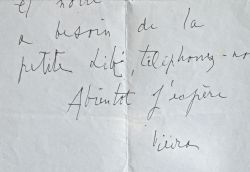 et notre
a besoin de la
petite Libé, téléphonez-no
Abientot j'espère
Vieira